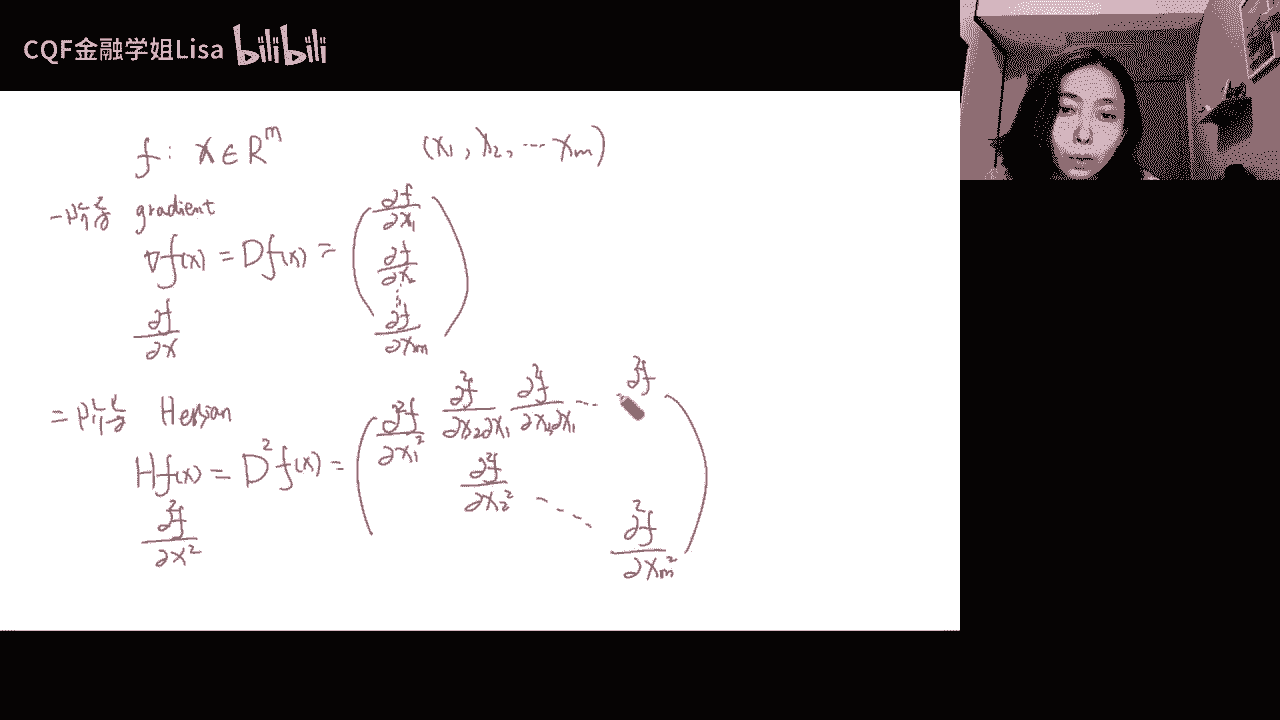 CQF金融学姐Lisa bilibili
f: x ∈ R^m (x₁, x₂, ⋯ xₘ)
一阶 gradient
∇f(x) = Df(x) = (∂f/∂x₁ ∂f/∂x₂ ⋮ ∂f/∂xₘ)
∂f/∂x
二阶 Hessian
Hf(x) = D²f(x) = (∂²f/∂x₁² ∂²f/∂x₂∂x₁ ⋯ ∂²f
∂²f/∂x₂² ⋱
∂²f/∂xₘ²)
∂²f/∂x²